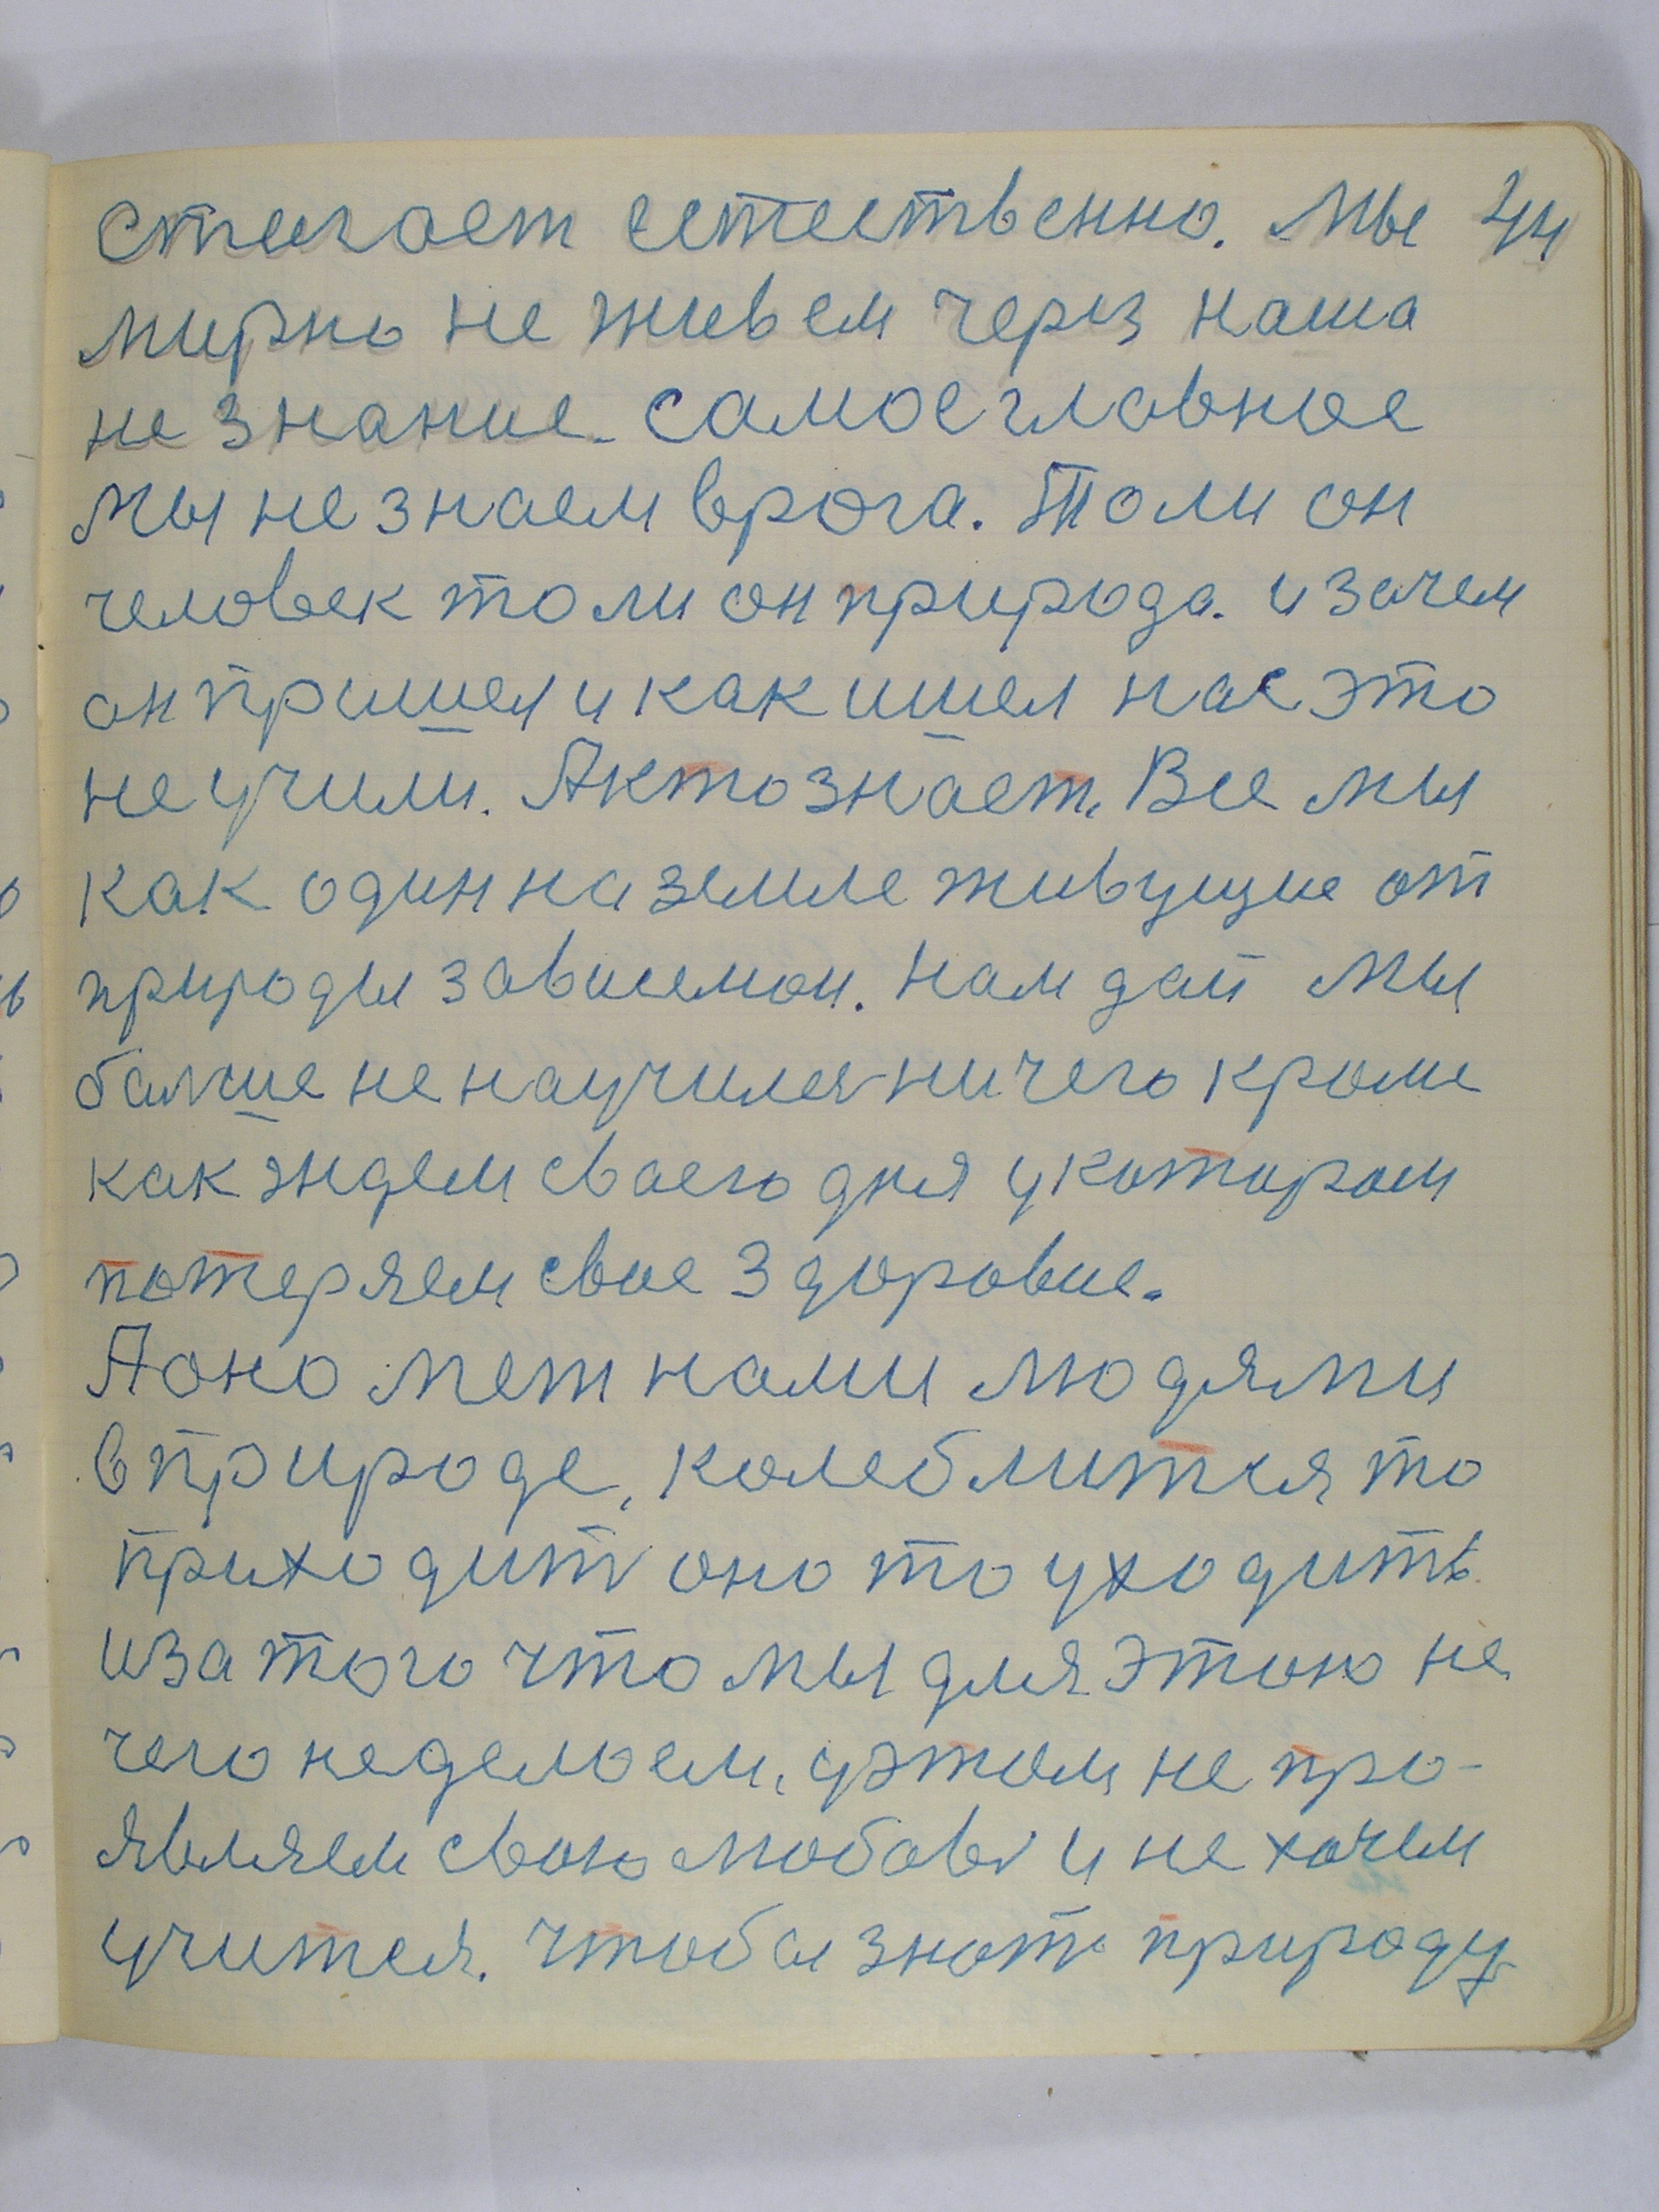 стигает естественно. Мы 44
мирно не живем через наша
не знание. самое главное
мы не знаем врога. Толи он
человек толи он природа. и зачем
он пришел и как ишел нас это
не учили. А кто знает. Все мы
как один на земле живущие от
природы зависемои. Нам дай мы
балше не научился ничего кроме
как ждем своего дня у котором
потеряем свое здоровие.
А оно мет нами людями
в природе, колеблится то
приходит оно то уходить
иза того что мы для этою не
чего неделоем, уэтом не про-
являем свою любовь и не хочем
учится. чтобы знать природу